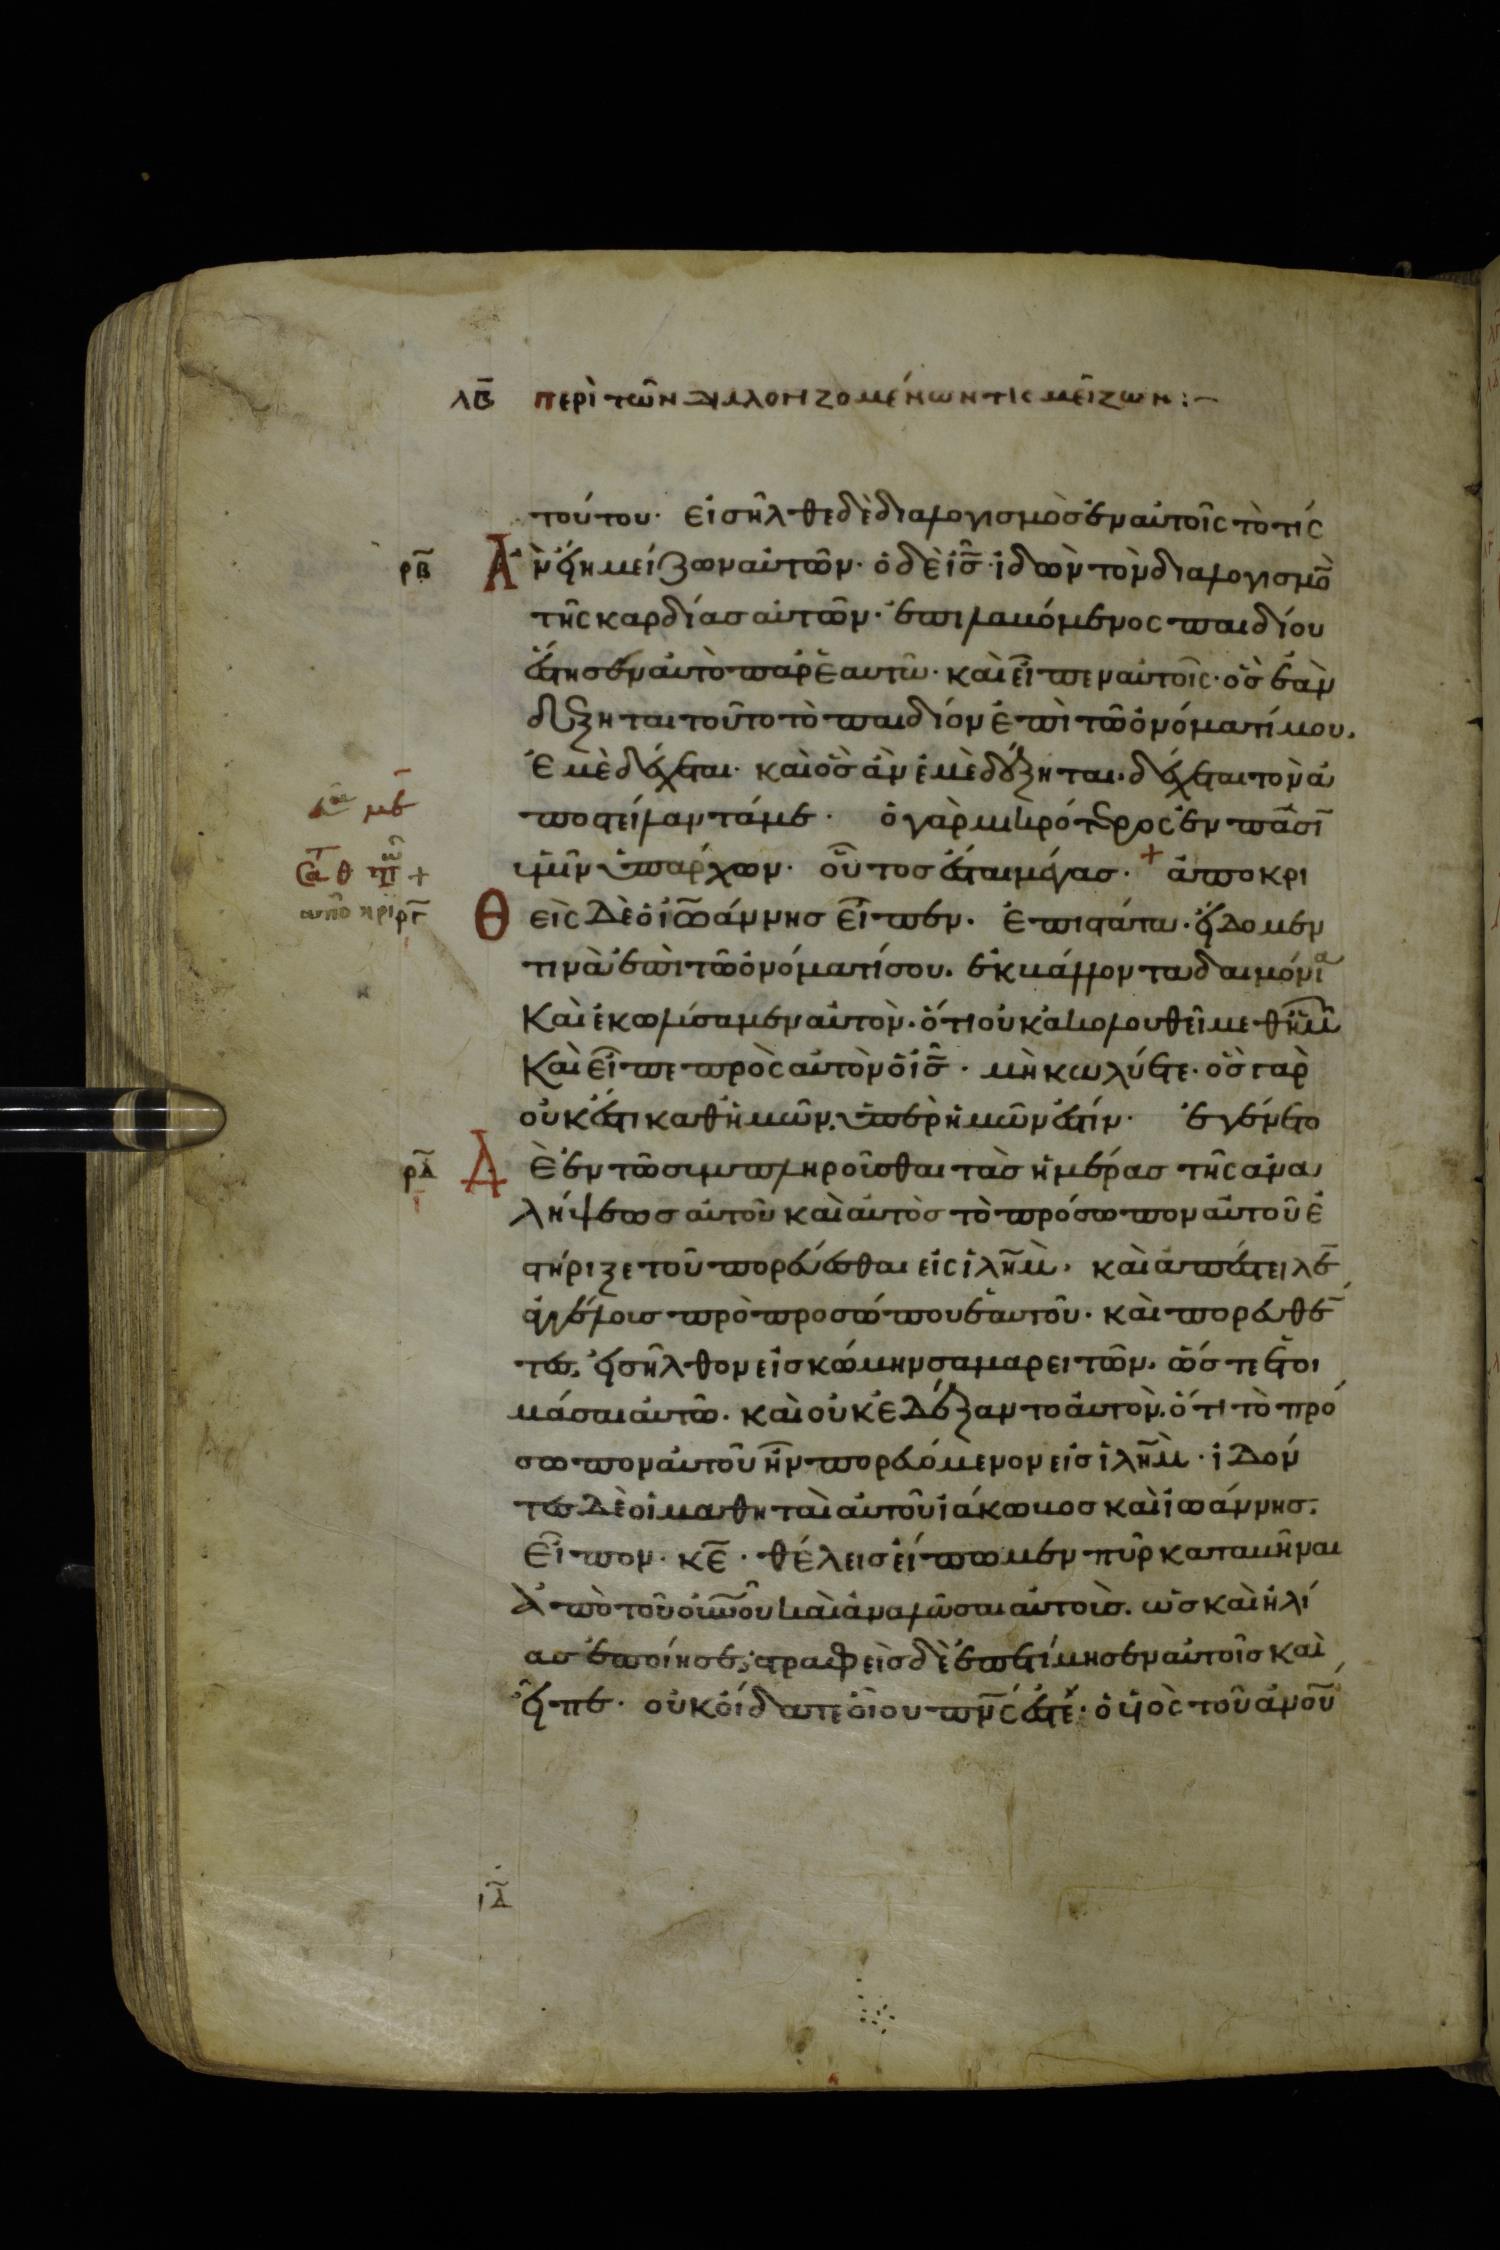 λβ̅ περὶ τῶν διαλογιζομένων τίς μείζων :–
τούτου· εἰσῆλθε δὲ διαλογισμὸς ἐν αὐτοῖς τὸ τίς
ρβ̅ ἂν εἴη μείζων αὐτῶν· ὁ δὲ ι̅σ̅· ἰδὼν τὸν διαλογισμὸ̅
τῆς καρδίας αὐτῶν· ἐπιλαβόμενος παιδίου
ἔστησεν αὐτὸ παρ' ἑαυτῶ· καὶ εἶπεν αὐτοῖς· ὃς ἐὰν
δέξηται τοῦτο τὸ παιδίον ἐπὶ τῶ ὀνόματί μου.
ἐμὲ δέχεται· καὶ ὃς ἂν ἐμὲ δέξηται· δέχεται τὸν ἀ
ποστείλαντά με· ὁ γὰρ μικρότερος ἐν πᾶσι̅
με̅
ὑμῖν ὑπάρχων· οὗτος ἔσται μέγας· + ἀποκρι
Σα θ +
ρ̅γ̅
θεὶς δὲ ὁ ἰωάννης εἶπεν. ἐπιστάτα· εἴδομεν
τινὰ ἐπὶ τῶ ὀνόματί σου. ἐκβάλλοντα δαιμόνια
καὶ ἐκωλύσαμεν αὐτὸν· ὅτι οὐκ ἀκολουθεῖ μεθ' ἡμῶ̅
καὶ εἶπε πρὸς αὐτὸν ὁ ι̅σ̅· μὴ κωλύετε· ὃς γὰρ
οὐκ ἔστι καθ' ἡμῶν. ὑπὲρ ἡμῶν ἐστίν· ἐγένετο
ρδ̅ δὲ ἐν τῶ συμπληροῦσθαι τὰς ἡμέρας τῆς ἀνα
λήψεως αὐτοῦ καὶ αὐτὸς τὸ πρόσωπον αὐτοῦ ἐ
στήριξε τοῦ πορεύεσθαι εἰς ἰλη̅μ· καὶ ἀπέστειλε̅
ἀγγέλους πρὸ προσώπου ἑαυτοῦ· καὶ πορευθέ̅
τες, εἰσῆλθον εἰς κώμην σαμαρειτῶν. ὥστε ἑτοι
μάσαι αὐτῶ· καὶ οὐκ ἐδέξαντο αὐτὸν. ὅτι τὸ πρό
σωπον αὐτοῦ ἦν πορευόμενον εἰς ἰλη̅μ· ἰδόν
τες δὲ οἱ μαθηταὶ αὐτοῦ ἰάκωβος καὶ ἰωάννης.
εἶπον· κ̅ε̅· θέλεις εἴπωμεν πῦρ καταβῆναι
ἀπὸ τοῦ οὐ̅νοῦ καὶ ἀναλῶσαι αὐτούς. ὡς καὶ ἠλί
ας ἐποίησε, στραφεὶς δὲ ἐπετίμησεν αὐτοῖς καὶ
εἶπε· οὐκ οἴδατε οἵου πν̅ς ἐστέ· ὁ υἱὸς τοῦ ἀνο̅υ
ιδ̅